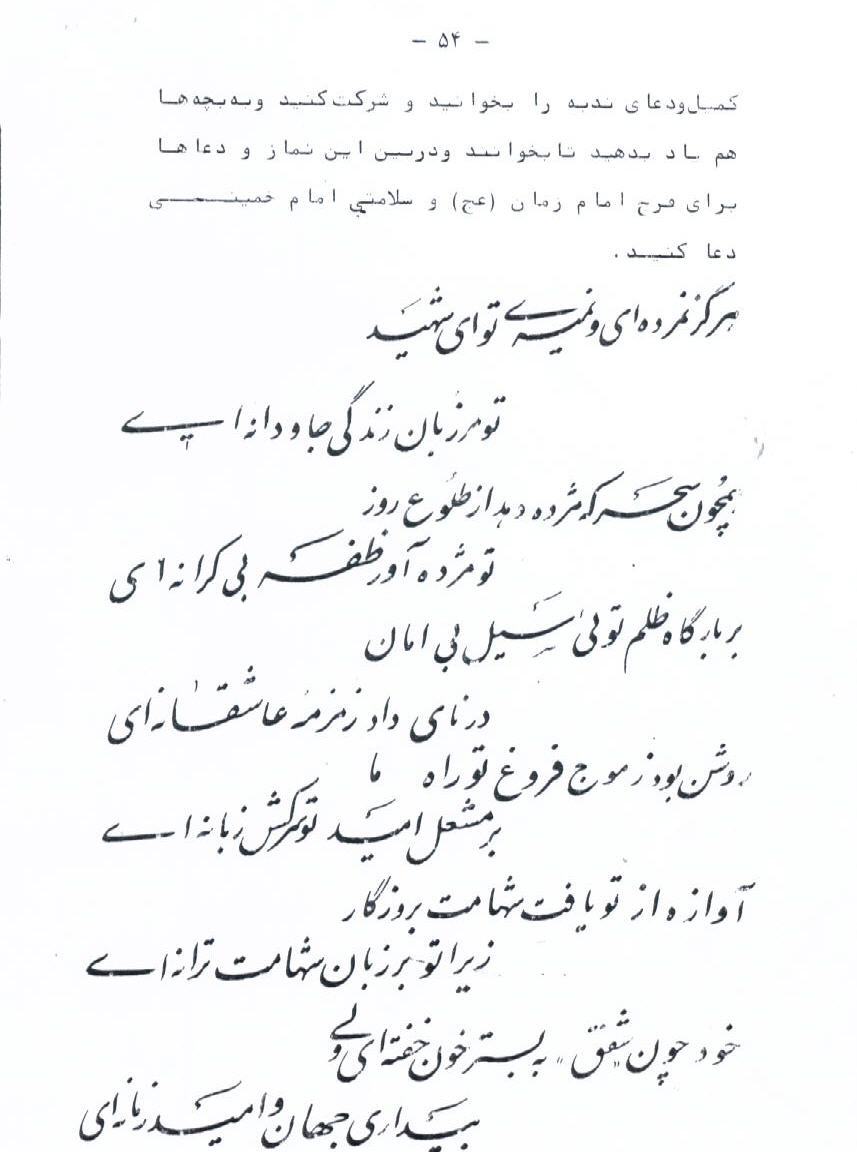 - ۵۴ -
کمیل ودعای ندبه را بخوانید و شرکت کنید وبه بچه‌ها
هم یاد بدهید تا بخوانند ودربین این نماز و دعاها
برای فرج امام زمان (عج) و سلامتی امام خمینی
دعا کنید.
هرگز نمرده‌ای و نمیرے تو ای شهید
تو مرزبان زندگی جاودانه‌ایے
همچون سحر که مژده دهد از طلوع روز
تو مژده آور ظفر بی کرانه‌ای
بر بارگاه ظلم توئی سیل بی امان
در نای داد زمزمه عاشقانه‌ای
روشن بود ز موج فروغ تو راه ما
بر مشعل امید تو سرکش زبانه‌اے
آوازه از تو یافت شهامت بروزگار
زیرا تو بر زبان شهامت ترانه‌اے
خود چون "شفق" به بستر خون خفته‌ای ولے
بیداری جهان و امید زمانه‌ای